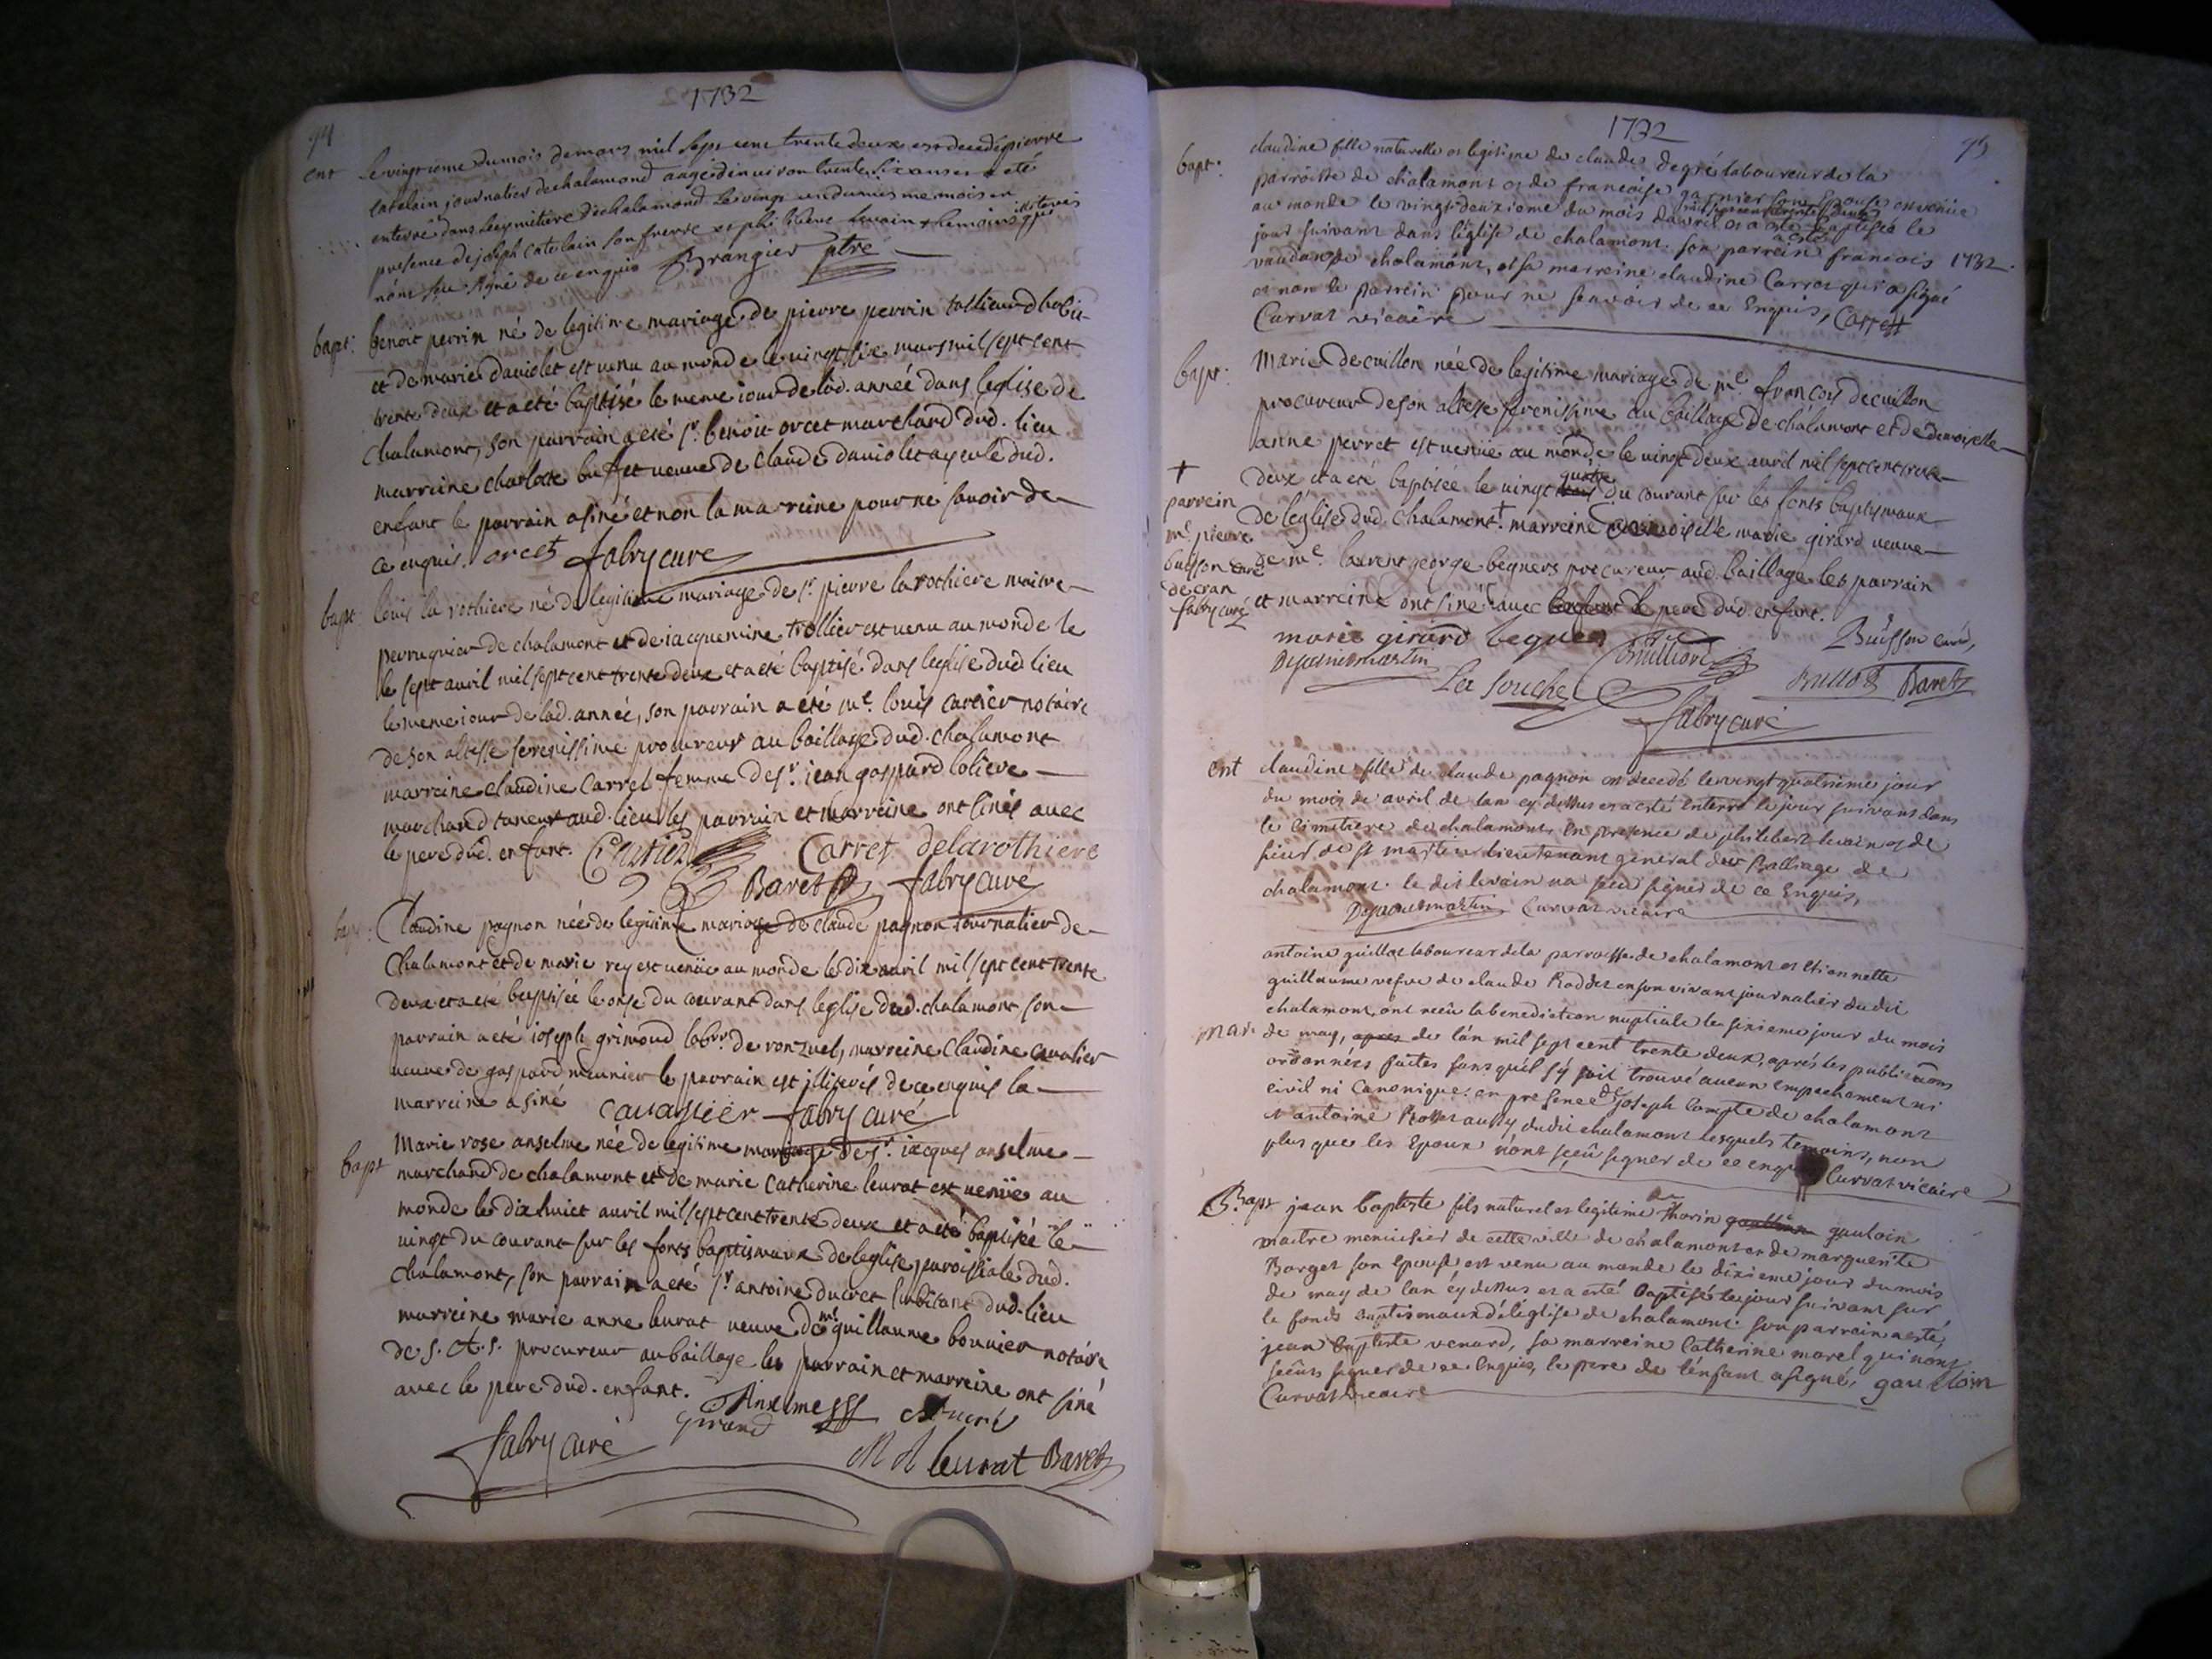 1732
74
ent le vingtieme du mois de mars mil sept cent trente deux est decede pierre
catelain journalier de chalamond agé d'environ trente six ans et a eté
enterré dans le cymitiere de chalamond le vingt un du mesme mois en
presence de joseph catelain son frerre et phi libert levain temoins illiterés qui
n'ont sçu signé de ce enquis Brangier ptre
bapt: benoit perrin né de legitime mariage de pierre perrin
et de marie daviolet est venu au monde le vingt six mars mil sept cent
trente deux et a eté baptisé le meme iour de lad. année dans leglise de
chalamont, son parrain a eté sr. benoit orcet marchand dud. lieu
marreine charlotte buffet veuve de claude daviolet ayeule dud.
enfant le parrain a siné et non la marreine pour ne savoir de
ce enquis. orcet fabry curé
bapt louis la rothiere né de legitime mariage de sr. pierre la rothiere maitre
perruquier de chalamont et de iacquemine trollier est venu au monde le
le sept avril mil sept cent trente deux et a eté baptisé dans leglise dud lieu
le meme iour de lad. année, son parrain a eté me. louis cartier notaire
de son altesse serenissime procureur au baillage dud. chalamont
marreine claudine carret femme de sr. iean gaspard lolieve
marchand taneur aud. lieu les parrain et marreine ont sinés avec
le pere dud. enfant. Cartier Carret delarothiere
Baret fabry curé
bapt: Claudine pagnon née de legitime mariage de claude pagnon iournalier de
Chalamont et de marie rey est venüe au monde le dix avril mil sept cent trente
deux et a eté baptisée le onse du courant dans leglise dud. chalamont son
parrain a eté ioseph grimond labr. de ronzuel, marreine claudine cavalier
veuve de gaspard meunier le parrain est illiterés de ce enquis la
marreine a siné cavallier fabry curé
bapt Marie rose anselme née de legitime mariage de sr. iacques anselme
marchand de chalamont et de marie catherine leurat est venüe au
monde le dix huict avril mil sept cent trente deux et a eté baptisée le
vingt du courant sur les fonts baptismaux de leglise paroissiale dud.
chalamont, son parrain a eté sr. antoine ducret habitant dud. lieu
marreine marie anne leurat veuve de me guillaume bouvier notaire
de S. A. S. procureur au baillage les parrain et marreine ont siné
avec le pere dud. enfant. Anselme
Girand
fabry curé M A leurat Baret
1732
75
bapt: claudine fille naturelle et legitime de claude degré laboureur de la
parroisse de chalamont et de francoise garnier son Epouse est venüe
au monde le vingt deuxieme du mois d'avril mil sept cent trente deux et a esté baptisée le
jour suivant dans l'église de chalamont. son parrein a esté francois 1732.
vaudan de chalamont, et sa marreine claudine Carret qui a signé
et non le parrein pour ne sçavoir de ce Enquis, Carret
Curvat vicaire
bapt: Marie decuillon née de legitime mariage de me francois decuillon
procureur de son altesse serenissime au baillage de chalamont et de demoiselle
anne perret est venüe au monde le vingt deux avril mil sept cent trente
deux et a eté baptisée le vingt quatre du courant sur les fonts baptismaux
de leglise dud. Chalamont † marreine demoiselle marie girard veuve
de me. laurent george beguers procureur aud. baillage les parrain
et marreine ont siné avec le pere dud. enfant.
†
parrein
mr. pierre
buisson curé
de cran
fabry curé
marie girard beguer Buisson curé,
Dejacuesmartin
La Souche Baret
fabry curé
ent claudine fille de claude pagnon est decedé le vingt quatrieme jour
du mois de avril de lan cy dessus et a esté enterré le jour suivant dans
le cimitiere de chalamont, en presence de philibert levain et de
sieur de st martin lieutenant general du Balliage de
chalamont. le dit levain na sceu signer de ce Enquis,
Dejacuesmartin Curvat vicaire
antoine guillot laboureur de la parroisse de chalamont et Etiennette
guillaume vefve de claude Roddet en son vivant journalier dudit
chalamont, ont reçû la benediction nuptiale le sixieme jour du mois
mari de may, de l'an mil sept cent trente deux, aprés les publications
ordonnées faites sans qu'il s'y soit trouvé aucun empechement ni
civil ni Canonique. en presence de joseph Compte de chalamont
et antoine Rosset aussy dudit chalamont lesquels temoins, non
plus que les Epoux n'ont sçeû signer de ce enquis Curvat vicaire
Bapt jean baptiste fils naturel et legitime de thorin gauloin
maitre menuisier de cette ville de chalamont et de marguerite
Barget son Epouse est venu au monde le dixieme jour du mois
de may de lan cy dessus et a esté Baptisé le jour suivant sur
le fonds baptismaux de leglise de chalamont son parrain a esté
jean baptiste venard, sa marreine Catherine morel qui n'ont
sceûs signer de ce Enquis, le pere de l'enfant a signé, gauloin
Curvat vicaire